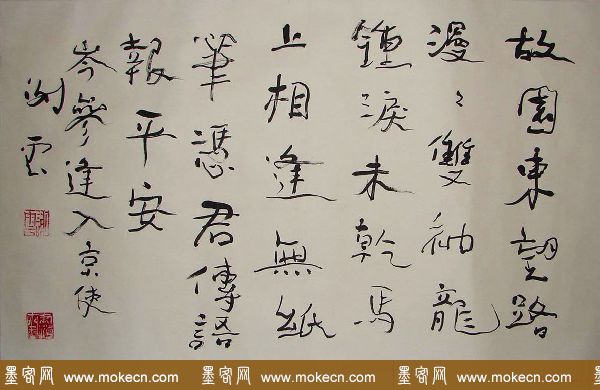 故園東望路
漫〻雙袖龍
鍾淚未乾馬
上相逢無紙
筆憑君傳語
報平安
岑參逢入京使
墨客网 www.mokecn.com 墨客网 www.mokecn.com 墨客网 www.mokecn.com